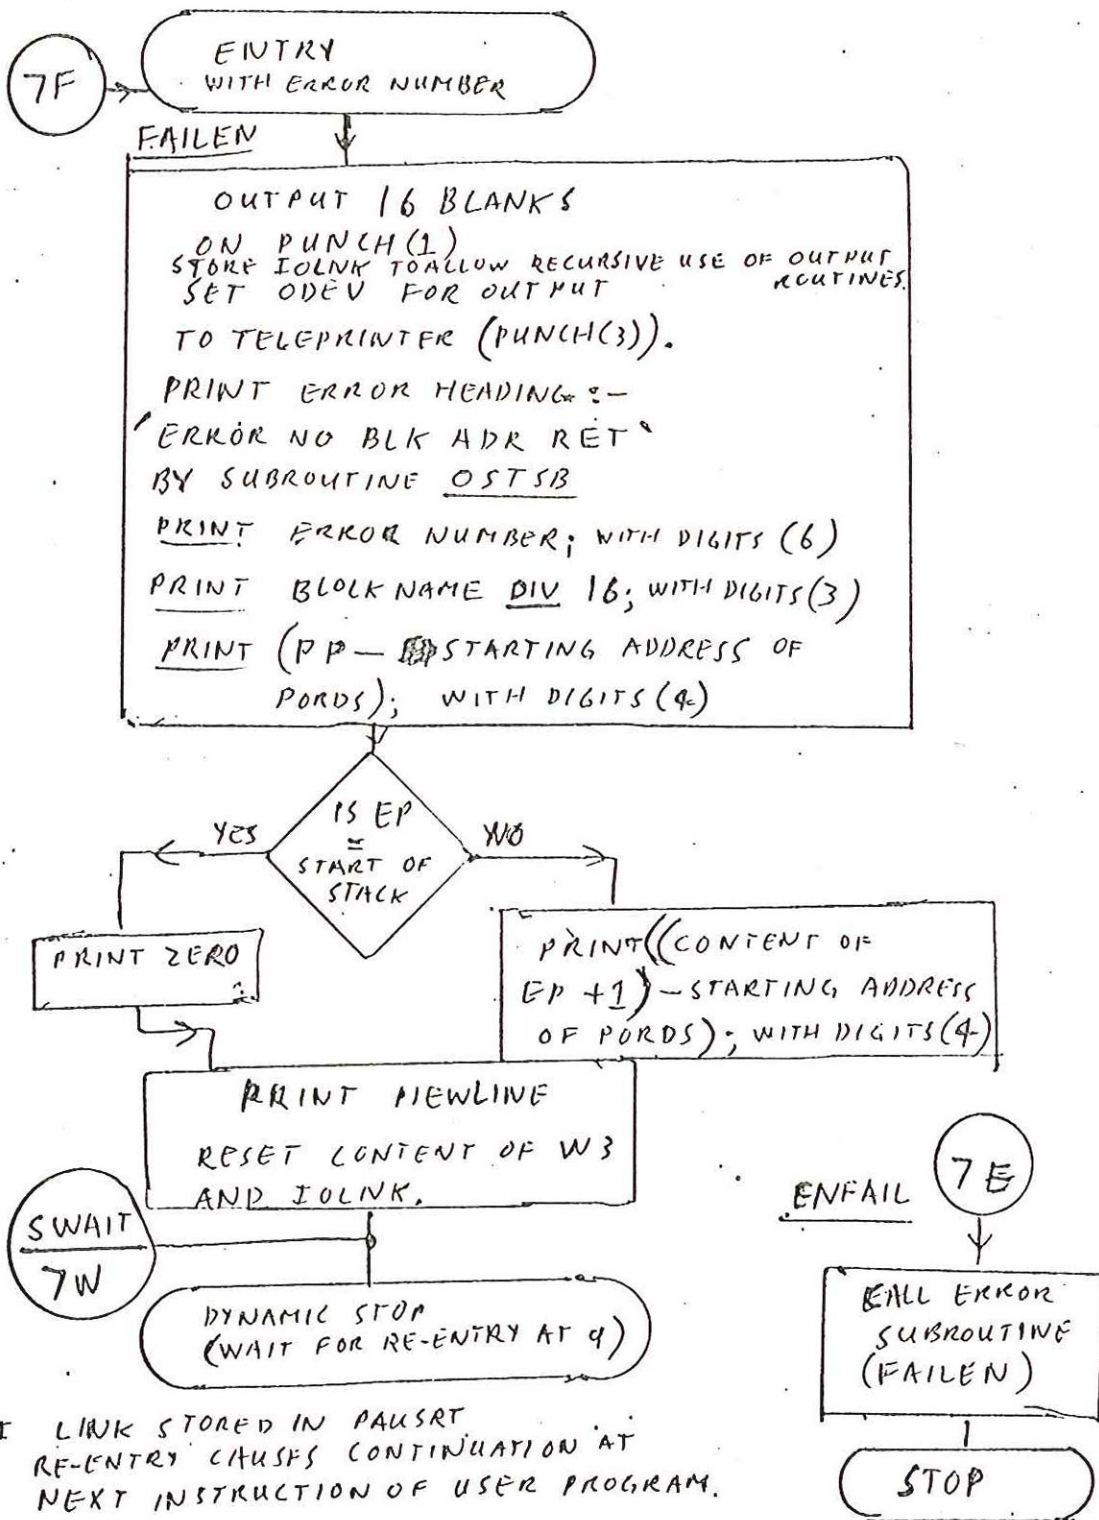 7F
ENTRY
WITH ERROR NUMBER
FAILEN
OUTPUT 16 BLANKS
ON PUNCH(1)
STORE IOLNK TO ALLOW RECURSIVE USE OF OUTPUT
ROUTINES.
SET ODEV FOR OUTPUT
TO TELEPRINTER (PUNCH(3)).
PRINT ERROR HEADING :-
'ERROR NO BLK ADR RET'
BY SUBROUTINE OSTSB
PRINT ERROR NUMBER; WITH DIGITS (6)
PRINT BLOLK NAME DIV 16; WITH DIGITS(3)
PRINT (PP - STARTING ADDRESS OF
PORDS); WITH DIGITS (4)
IS EP
=
START OF
STACK
YES
NO
PRINT ZERO
PRINT((CONTENT OF
EP +1) - STARTING ADDRESS
OF PORDS); WITH DIGITS(4)
PRINT NEWLINE
RESET CONTENT OF W3
AND IOLNK.
SWAIT
7W
DYNAMIC STOP
(WAIT FOR RE-ENTRY AT 9)
LINK STORED IN PAUSRT
RE-ENTRY CAUSES CONTINUATION AT
NEXT INSTRUCTION OF USER PROGRAM.
7E
ENFAIL
CALL ERROR
SUBROUTINE
(FAILEN)
STOP